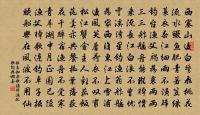 西塞山前白鷺飛桃花
流水鱖魚肥青箬笠綠
蓑衣斜風細雨不須歸
釣臺漁父褐為裘兩兩
三三舴艋舟能縱棹慣
乘流長江白浪不曾憂
霅溪灣裏釣魚翁舴艋
為家西復東江上雪浦
邊風笑著荷衣不嘆窮
松江蟹舍主人歡菰飯
蓴羹亦共餐楓葉落荻
花乾醉宿漁舟不覺寒
青草湖中月正圓巴陵
漁父棹歌連釣車子橛
頭船樂在風波不用仙